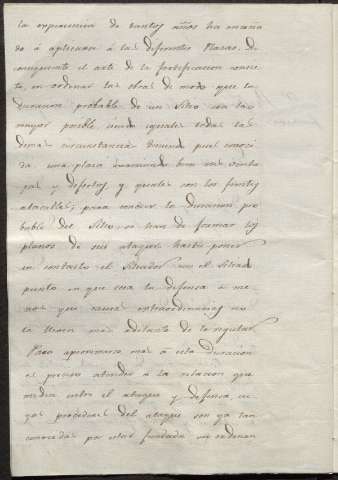 la experiencia de tantos años ha enseña
do á aplicarse á las diferentes Plazas. De
consiguiente el arte de la fortificacion consis
te, en ordenar las obras de modo que la
duracion probable de un Sitio sea la
mayor posible, siendo iguales todas las
demas circunstancias
da una plaza, examinada bien sus venta
jas y defectos, y quales son los frentes
atacables; para conocer la duracion pro
bable del Sitio, se han de formar los
planos de sus ataques hasta poner
en contacto el Sitiador con el Sitiado
punto en que cesa la defensa á me
nos que causas extraordinarias no
la lleven mas adelante de lo regular.
Para aproximarse mas á esta duracion
es preciso atender á la relacion que
media entre el ataque y defensa, cu
yos procederes del ataque son ya tan
conocidos por estar fundados en